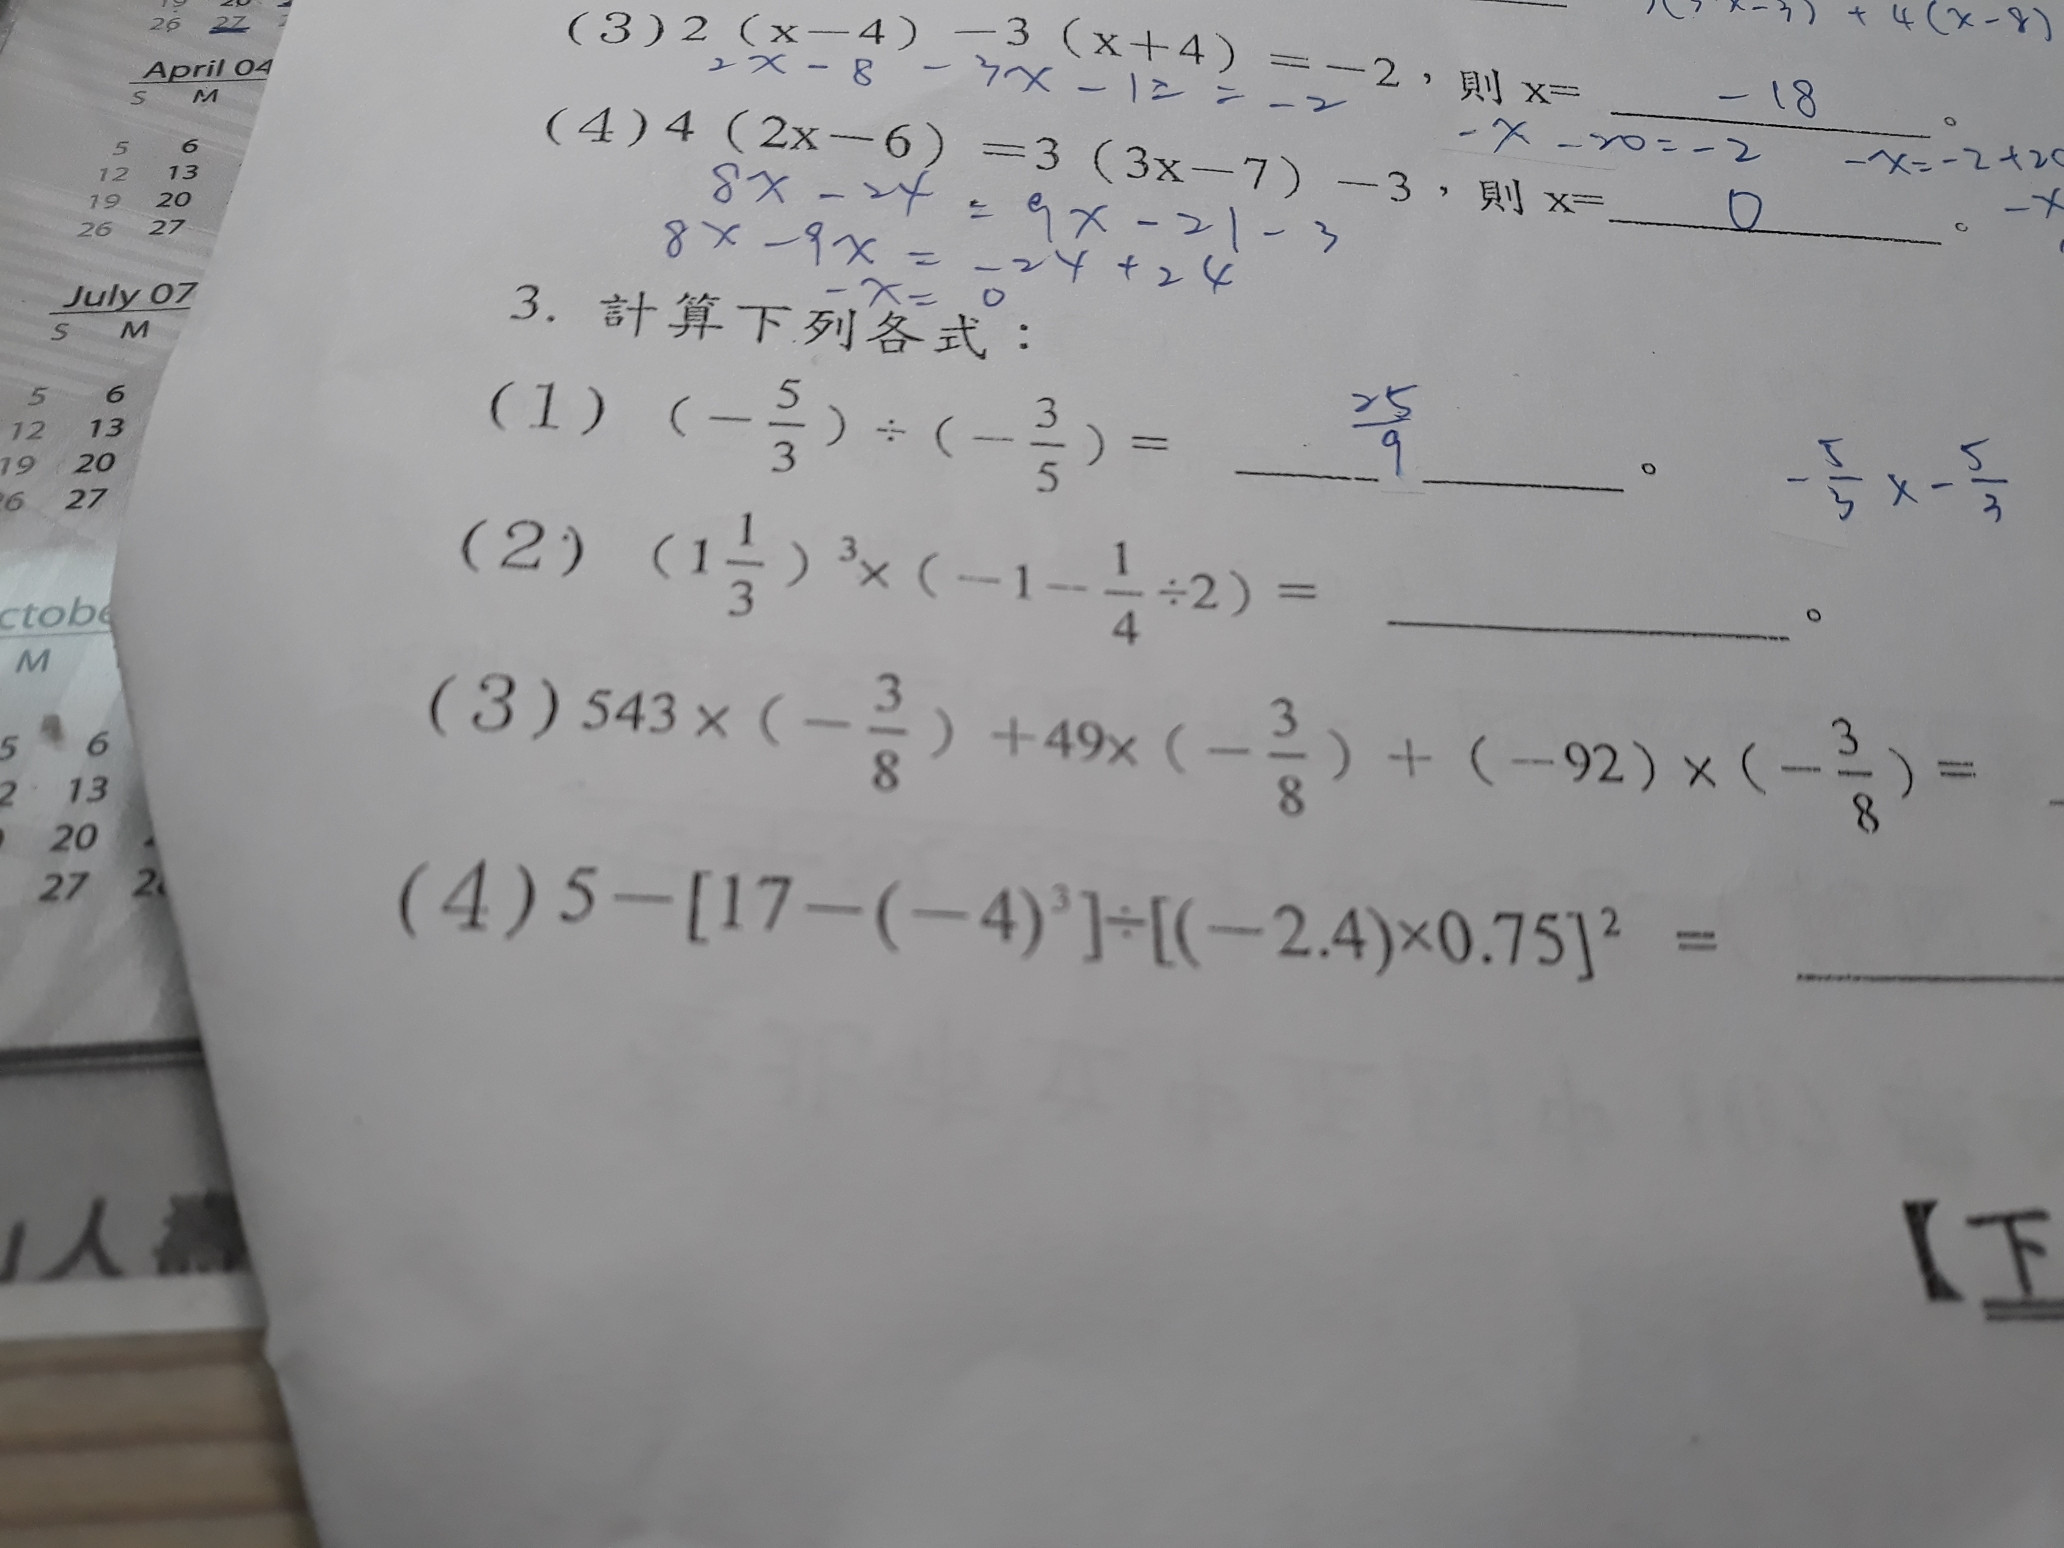 26 27
April 04
S M
5 6
12 13
19 20
26 27
July 07
S M
5 6
12 13
19 20
26 27
ctobe
M
5 6
2 13
20
27 2
人
+ 4(x-8)
(3) 2 (x-4) -3 (x+4) =-2,則 x= -18 。
2x-8-3x-12=-2
-x-20=-2 -x=-2+20
(4) 4 (2x-6) =3 (3x-7) -3,則 x= 0 。
-x
8x-24=9x-21-3
8x-9x=-24+24
-x=0
3. 計算下列各式:
(1) (-5/3)÷(-3/5)= 25/9 。
-5/3 x -5/3
(2) (1 1/3)³×(-1-1/4÷2)= 。
(3) 543×(-3/8)+49×(-3/8)+(-92)×(-3/8)=
(4) 5-[17-(-4)³]÷[(-2.4)×0.75]² =
【下